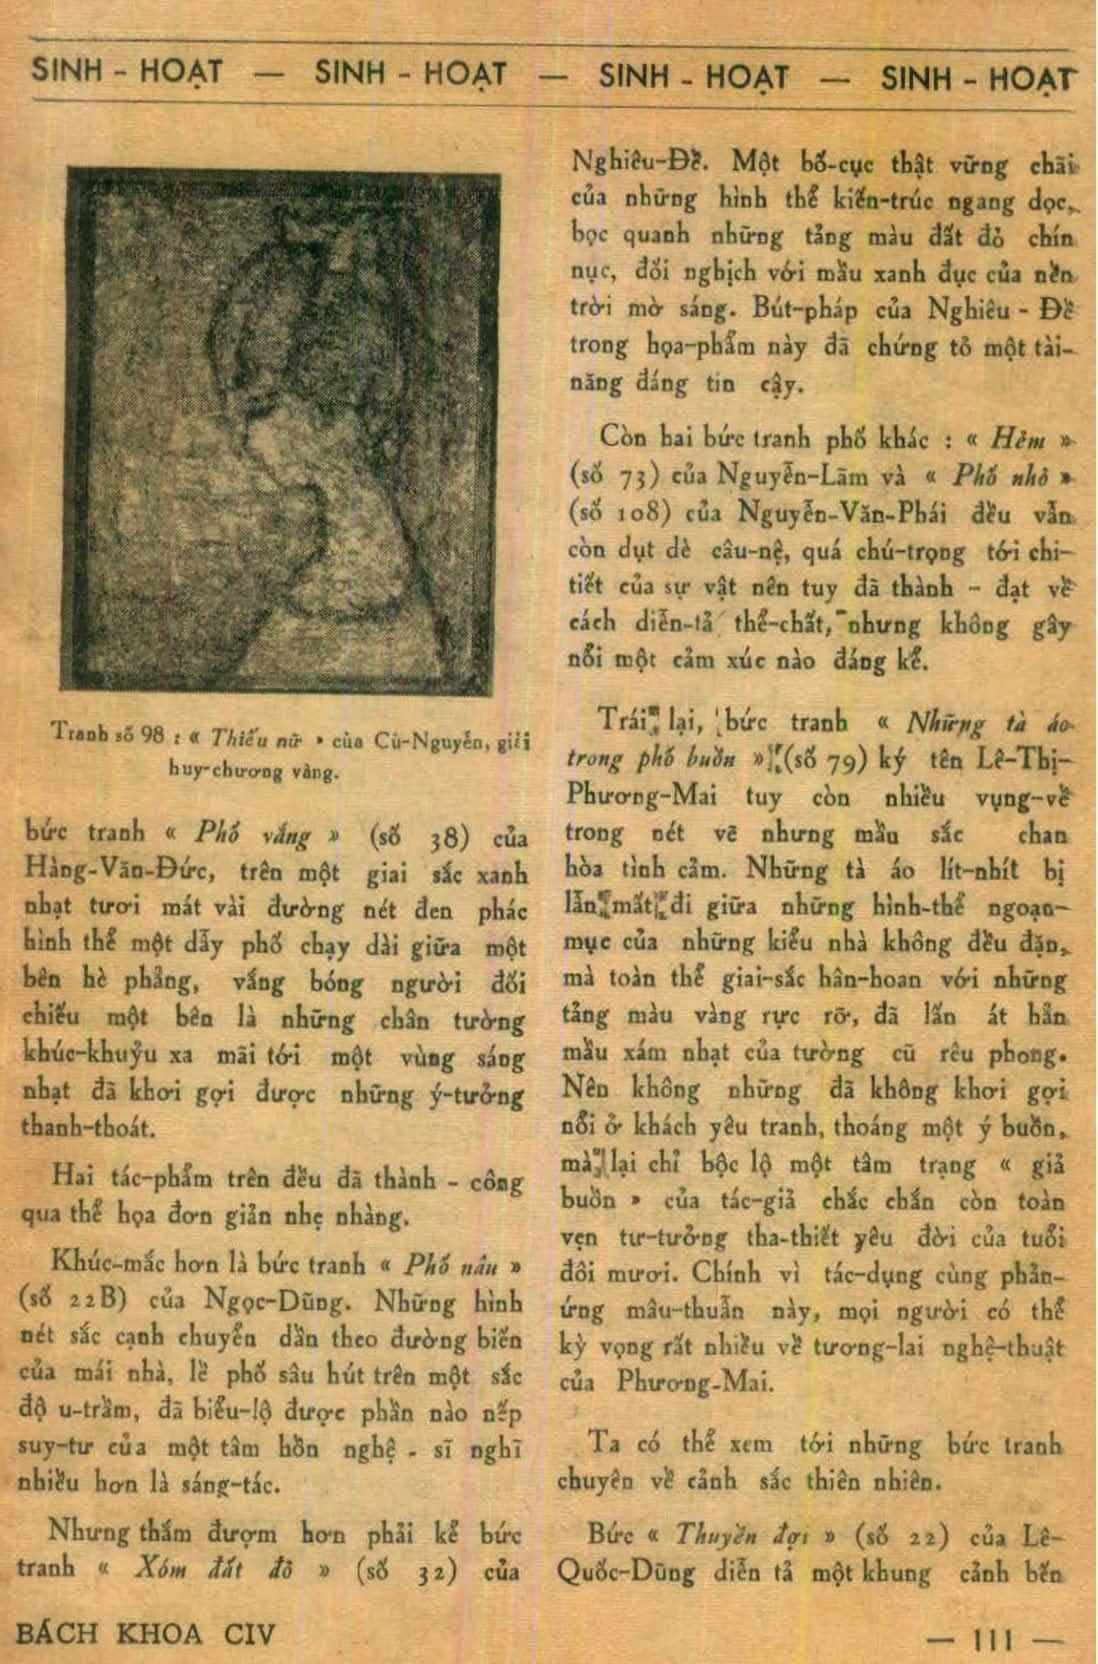 SINH - HOẠT — SINH - HOẠT — SINH - HOẠT — SINH - HOẠT
Tranh số 98 : « Thiếu nữ » của Cù-Nguyễn, giải
huy-chương vàng.
bức tranh « Phố vắng » (số 38) của
Hàng-Văn-Đức, trên một giai sắc xanh
nhạt tươi mát vài đường nét đen phác
hình thể một dẫy phố chạy dài giữa một
bên hè phẳng, vắng bóng người đối
chiếu một bên là những chân tường
khúc-khuỷu xa mãi tới một vùng sáng
nhạt đã khơi gợi được những ý-tưởng
thanh-thoát.
Hai tác-phẩm trên đều đã thành - công
qua thể họa đơn giản nhẹ nhàng.
Khúc-mắc hơn là bức tranh « Phố nâu »
(số 22B) của Ngọc-Dũng. Những hình
nét sắc cạnh chuyển dần theo đường biến
của mái nhà, lề phố sâu hút trên một sắc
độ u-trầm, đã biểu-lộ được phần nào nếp
suy-tư của một tâm hồn nghệ - sĩ nghĩ
nhiều hơn là sáng-tác.
Nhưng thắm đượm hơn phải kể bức
tranh « Xóm đất đỏ » (số 32) của
Nghiêu-Đề. Một bố-cục thật vững chãi
của những hình thể kiến-trúc ngang dọc,
bọc quanh những tảng màu đất đỏ chín
nục, đối nghịch với mầu xanh đục của nền
trời mờ sáng. Bút-pháp của Nghiêu - Đề
trong họa-phẩm này đã chứng tỏ một tài-
năng đáng tin cậy.
Còn hai bức tranh phố khác : « Hẻm »
(số 73) của Nguyễn-Lãm và « Phố nhỏ »
(số 108) của Nguyễn-Văn-Phái đều vẫn
còn dụt dè câu-nệ, quá chú-trọng tới chi-
tiết của sự vật nên tuy đã thành - đạt về
cách diễn-tả thể-chất, nhưng không gây
nổi một cảm xúc nào đáng kể.
Trái lại, bức tranh « Những tà áo
trong phố buồn » (số 79) ký tên Lê-Thị-
Phương-Mai tuy còn nhiều vụng-về
trong nét vẽ nhưng mầu sắc chan
hòa tình cảm. Những tà áo lít-nhít bị
lẫn mất đi giữa những hình-thể ngoạn-
mục của những kiểu nhà không đều đặn,
mà toàn thể giai-sắc hân-hoan với những
tảng màu vàng rực rỡ, đã lấn át hẳn
mầu xám nhạt của tường cũ rêu phong.
Nên không những đã không khơi gợi
nổi ở khách yêu tranh, thoáng một ý buồn,
mà lại chỉ bộc lộ một tâm trạng « giả
buồn » của tác-giả chắc chắn còn toàn
vẹn tư-tưởng tha-thiết yêu đời của tuổi
đôi mươi. Chính vì tác-dụng cùng phản-
ứng mâu-thuẫn này, mọi người có thể
kỳ vọng rất nhiều về tương-lai nghệ-thuật
của Phương-Mai.
Ta có thể xem tới những bức tranh
chuyên về cảnh sắc thiên nhiên.
Bức « Thuyền đợi » (số 22) của Lê-
Quốc-Dũng diễn tả một khung cảnh bến
BÁCH KHOA CIV
— 111 —